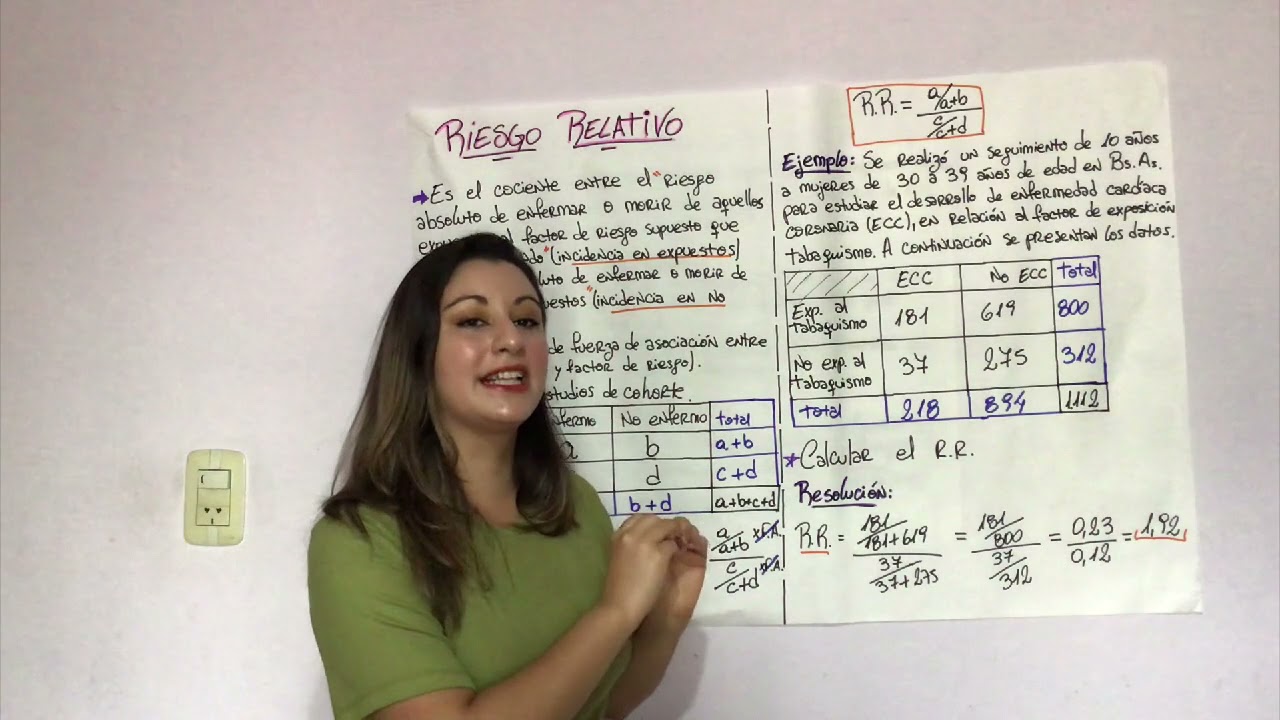 RIESGO RELATIVO
→ Es el cociente entre el "riesgo
absoluto de enfermar o morir de aquellos
al factor de riesgo supuesto que
(incidencia en expuestos)
de enfermar o morir de
(incidencia en no
de fuerza de asociación entre
y factor de riesgo).
de cohorte.
No enfermo total
a b a+b
d c+d
b+d a+b+c+d
a/a+b
c/c+d
R.R. = a/a+b
c/c+d
Ejemplo: Se realizó un seguimiento de 10 años
a mujeres de 30 a 39 años de edad en Bs. As.
para estudiar el desarrollo de enfermedad cardíaca
coronaria (ECC), en relación al factor de exposición
tabaquismo. A continuación se presentan los datos.
ECC No ECC total
Exp. al tabaquismo 181 619 800
No exp. al tabaquismo 37 275 312
total 218 894 1112
* Calcular el R.R.
Resolución:
R.R. = 181/181+619 = 181/800 = 0,23 = 1,92
37/37+275 37/312 0,12